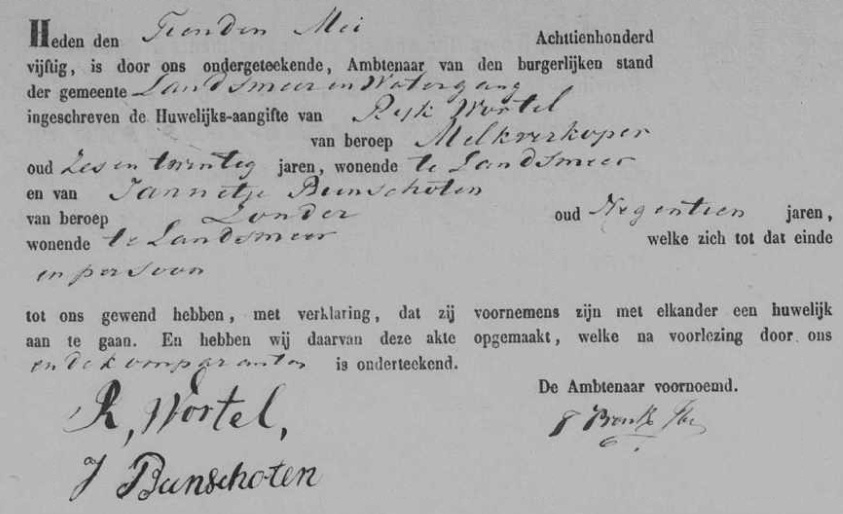 Heden den Tienden Mei Achttienhonderd
vijftig, is door ons ondergeteekende, Ambtenaar van den burgerlijken stand
der gemeente Landsmeer en Watergang
ingeschreven de Huwelijks-aangifte van Rijk Wortel
van beroep Melkverkoper
oud Zes en twintig jaren, wonende te Landsmeer
en van Jannetje Bunschoten
van beroep Zonder oud Negentien jaren,
wonende te Landsmeer welke zich tot dat einde
in persoon
tot ons gewend hebben, met verklaring, dat zij voornemens zijn met elkander een huwelijk
aan te gaan. En hebben wij daarvan deze akte opgemaakt, welke na voorlezing door ons
en de komparanten is onderteekend.
De Ambtenaar voornoemd.
R, Wortel,
J Bunschoten